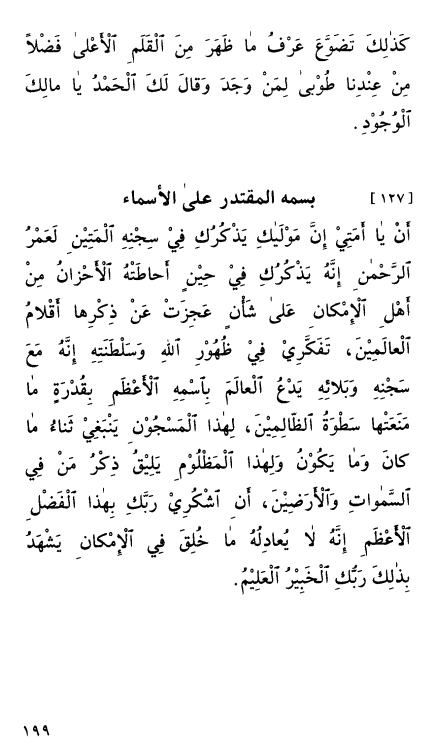 كَذٰلِكَ تَضَوَّعَ عَرْفُ مٰا ظَهَرَ مِنَ ٱلْقَلَمِ ٱلْأَعْلىٰ فَضْلاً
مِنْ عِنْدِنا طُوْبىٰ لِمَنْ وَجَدَ وَقالَ لَكَ ٱلْحَمْدُ يٰا مالِكَ
ٱلْوُجُوْدِ.
[١٢٧] بسمه المقتدر علىٰ الأسماء
أَنْ يٰا أَمَتِيْ إِنَّ مَوْلَيٰكِ يَذْكُرُكِ فِيْ سِجْنِهِ ٱلْمَتِيْنِ لَعَمْرُ
ٱلرَّحْمٰنِ إِنَّهُ يَذْكُرُكِ فِيْ حِيْنٍ أَحاطَتْهُ ٱلْأَحْزانُ مِنْ
أَهْلِ ٱلْإِمْكانِ عَلىٰ شَأْنٍ عَجِزَتْ عَنْ ذِكْرِها أَقْلامُ
ٱلْعالَمِيْنَ، تَفَكَّرِيْ فِيْ ظُهُوْرِ ٱللهِ وَسَلْطَنَتِهِ إِنَّهُ مَعَ
سَجْنِهِ وَبَلائِهِ يَدْعُ ٱلْعالَمَ بِٱسْمِهِ ٱلْأَعْظَمِ بِقُدْرَةٍ مٰا
مَنَعَتْها سَطْوَةُ ٱلظّالِمِيْنَ، لِهٰذا ٱلْمَسْجُوْنِ يَنْبَغِيْ ثَناءُ مٰا
كانَ وَمٰا يَكُوْنُ وَلِهٰذا ٱلْمَظْلُوْمِ يَلِيْقُ ذِكْرُ مَنْ فِي
ٱلسَّمٰواتِ وَٱلْأَرَضِيْنَ، أَنِ ٱشْكُرِيْ رَبَّكِ بِهٰذا ٱلْفَضْلِ
ٱلْأَعْظَمِ إِنَّهُ لٰا يُعادِلُهُ مٰا خُلِقَ فِي ٱلْإِمْكانِ يَشْهَدُ
بِذٰلِكَ رَبُّكِ ٱلْخَبِيْرُ ٱلْعَلِيْمُ.
١٩٩